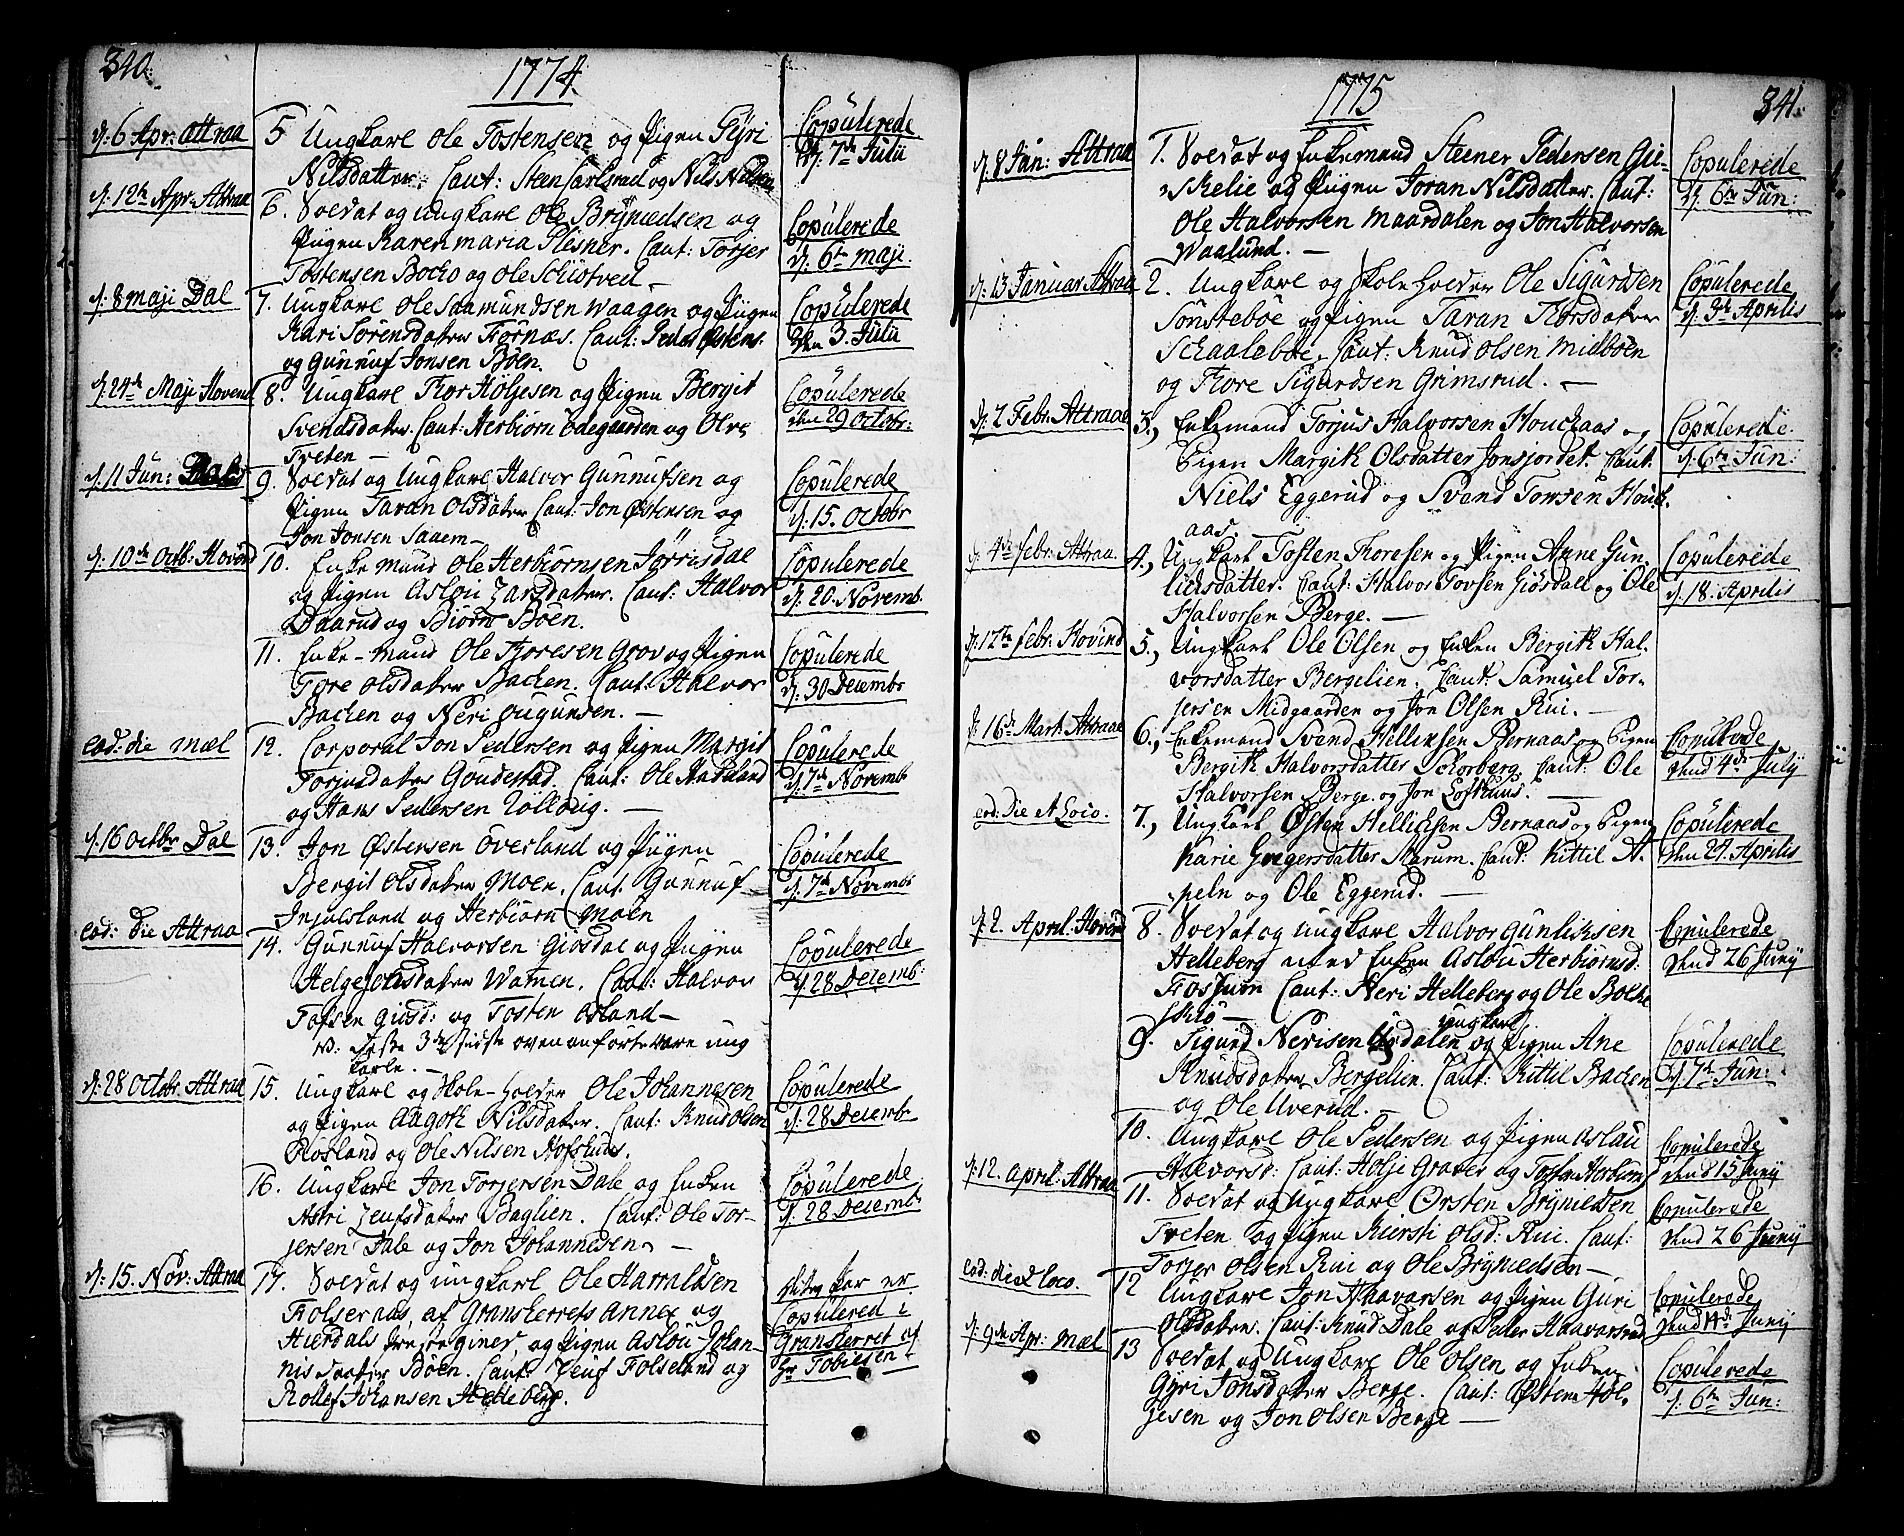 340.
1774.
d: 6 Apr: Attraa
5 Ungkarl Ole Tostensen og Pigen Gyri
Nilsdatter. Caut: Steen Carlsrud og Nils Nilsen
Copulerede
d: 7de Julii
d: 12te Apr: Attraa
6. Soldat og Ungkarl Ole Brynildsen og
Pigen Karen Maria Plesner. Caut: Torjer
Tostensen Bocko og Ole Schiotved.
Copulerede
d: 6te Maji.
d: 8 Maji Dal
7. Ungkarl Ole Saamundsen Waagen og Pigen
Kari Sørensdatter Fornæs. Caut: Peder Østens:
og Gunnuf Jonsen Boen.
Copulerede
den 3. Julii
d: 24de Maji Hovend
8. Ungkarl Thor Høljesen og Pigen Bergit
Svendsdater. Caut: Herbiørn Ødegaarden og Olve
Tveten —
Copulerede
den 29 Octobr:
d: 11 Jun: Dal
9. Soldat og Ungkarl Halvor Gunnufsen og
Pigen Taran Olsdater Caut: Jon Østensen og
Jon Jonsen
Copulerede
d: 15. Octobr
d: 10de Octb: Hovind
10. Enke Mand Ole Herbiørnsen Jørrisdal
og Pigen Aslou Larsdater. Caut: Halvor
Daarud og Biørn Böen.
Copulerede
d: 20. Novemb.
11. Enke-Mand Ole Thoresen Grov og Pigen
Tore Olsdater Bachen. Caut: Halvor
Bachen og Neri Ougunsen. —
Copulerede
d: 30 Decembr
eod: die Mæl
12. Corporal Jon Pedersen og Pigen Margit
Torjusdater Goudestad. Caut: Ole
og Hans Pedersen
Copulerede
d: 17de Novembr
d: 16 Octbr Dal
13. Jon Østensen Överland og Pigen
Bergit Olsdater Moen. Caut: Gunnuf
Ingulsland og Herbiørn Moen
Copulerede
d: 7de Novembr
eod: die Attraa
14. Gunnuf Halvorsen Giøsdal og Pigen
Helge Jonsdater Watnen. Caut: Halvor
Tofsen Giösd: og Tosten Øsland —
Copulerede
d 28 Decemb:
NB: Disse 3de sidste oven anforte vare Ung
karle. —
d: 28 Octobr. Attraa
15. Ungkarl og Skole-holder Ole Johannesen
og Pigen Aagot Nilsdater. Caut: Knud Olsen
Rosland og Ole Nilsen Hofshuus.
Copulerede
d: 28 Decembr
16. Ungkarl Jon Torgersen Dale og Enken
Astri Leufsdater Baglien. Caut: Ole Tor-
jersen Dale og Jon Johannesen. —
Copulerede
d: 28 Decembr
d: 15. Nov: Attraa
17. Soldat og Ungkarl Ole Haraldsen
Folsernæs, af Gransherrets Annex og
Hierdals Præstegield, og Pigen Aslou Johan-
nisdaatter Böen. Caut: Leuf Folseland og
Rollef Johansen Helleberg.
Dette Par er
Copulered i
Gransherret af
Hr Tobiesen

341.
1775
d: 8 Jan: Attraa
1. Soldat og Enkemand Steener Pedersen Gie-
Schelie og Pigen Joran Nilsdatter. Caut:
Ole Halvorsen Maardalen og Jon Halvorsen
Waalund. —
Copulerede
d. 6te Jun:
d: 13 Januar Attraa
2. Ungkarl og Skole Holder Ole Sigurdsen
Sönsteböe og Pigen Taran Thorsdater
Schaaleböe. Caut: Knud Olsen Midböen
og Thore Sigurdsen Grimsrud. —
Copulerede
d. 3de Aprilis
d: 2 Febr: Attraae
3., Enkemand Torjus Halvorsen Houchaas og
Pigen Margith Olsdatter Jonsjordet. Caut:
Niels Eggerud og Svend Tonsen Houk-
aas. —
Copulerede
d: 6te Jun:
d: 4de febr: Attraa
4., Ungkarl Tosten Thoresen og Pigen Anne Gun-
lichsdatter. Caut: Halvor Tovsen Giösdall og Ole
Halvorsen Berge. —
Copulerede
d. 18. Aprilis
d: 17te febr. Hovind
5., Ungkarl Ole Olsen og Enken Bergith Hal-
vorsdatter Bergelien. Caut: Samuel Tor-
jersen Midgaarden og Jon Olsen Rui. —
d: 16de Mart Attraae
6., Enkemand Svend Hellichsen Bernaas og Pigen
Bergith Halvorsdatter Schorberg. Caut: Ole
Halvorsen Berge. og Jon Lofthuus. —
Copulerede
dend 4de July
eod: Die A Loco.
7., Ungkarl Østen Hellichsen Bernaas og Pigen
Karie Gregersdatter Marum. Caut: Kittil A-
peln og Ole Eggerud. —
Copulerede
den 27. Aprilis
d. 2. April. Hovind
8. Soldat og Ungkarl Halvor Gunlichsen
Helleberg med Enken Aslou Herbiørnsd:
Fosjuen Caut: Neri Helleberg og Ole Bolke
skiö —
Copulerede
dend 26 Junij
9. Sigurd Nerisen Urdalen Ungkarl og Pigen Ane
Knudsdater Bergelien. Caut: Kittil Bachen
og Ole Uverud.
Copulerede
d. 7de Jun:
10. Ungkarl Ole Pedersen og Pigen Aslau
Halvorsd: Caut: Holje Graver og Tosten Herbiørns
Copulerede
dend 15 Junij
d. 12. April: Attraa
11. Soldat og Ungkarl Orsten Brynildsen
Tveten og Pigen Kiersti Olsd: Rui. Caut:
Torjer Olsen Rui og Ole Brynildsen —
Copulerede
dend 26 Junij
eod: die & loco.
12 Ungkarl Jon Haavorsen og Pigen Guri
Olsdater. Caut: Knud Dale og Peder Haavorsrud
Copulerede
dend 14de Junij
d. 9de Apr: Mæl
13 Soldat og Ungkarl Ole Olsen og Enken
Gyri Jonsdater Berge. Caut: Østen Hol-
jesen og Jon Olsen Berge —
Copulerede
d. 6te Jun: